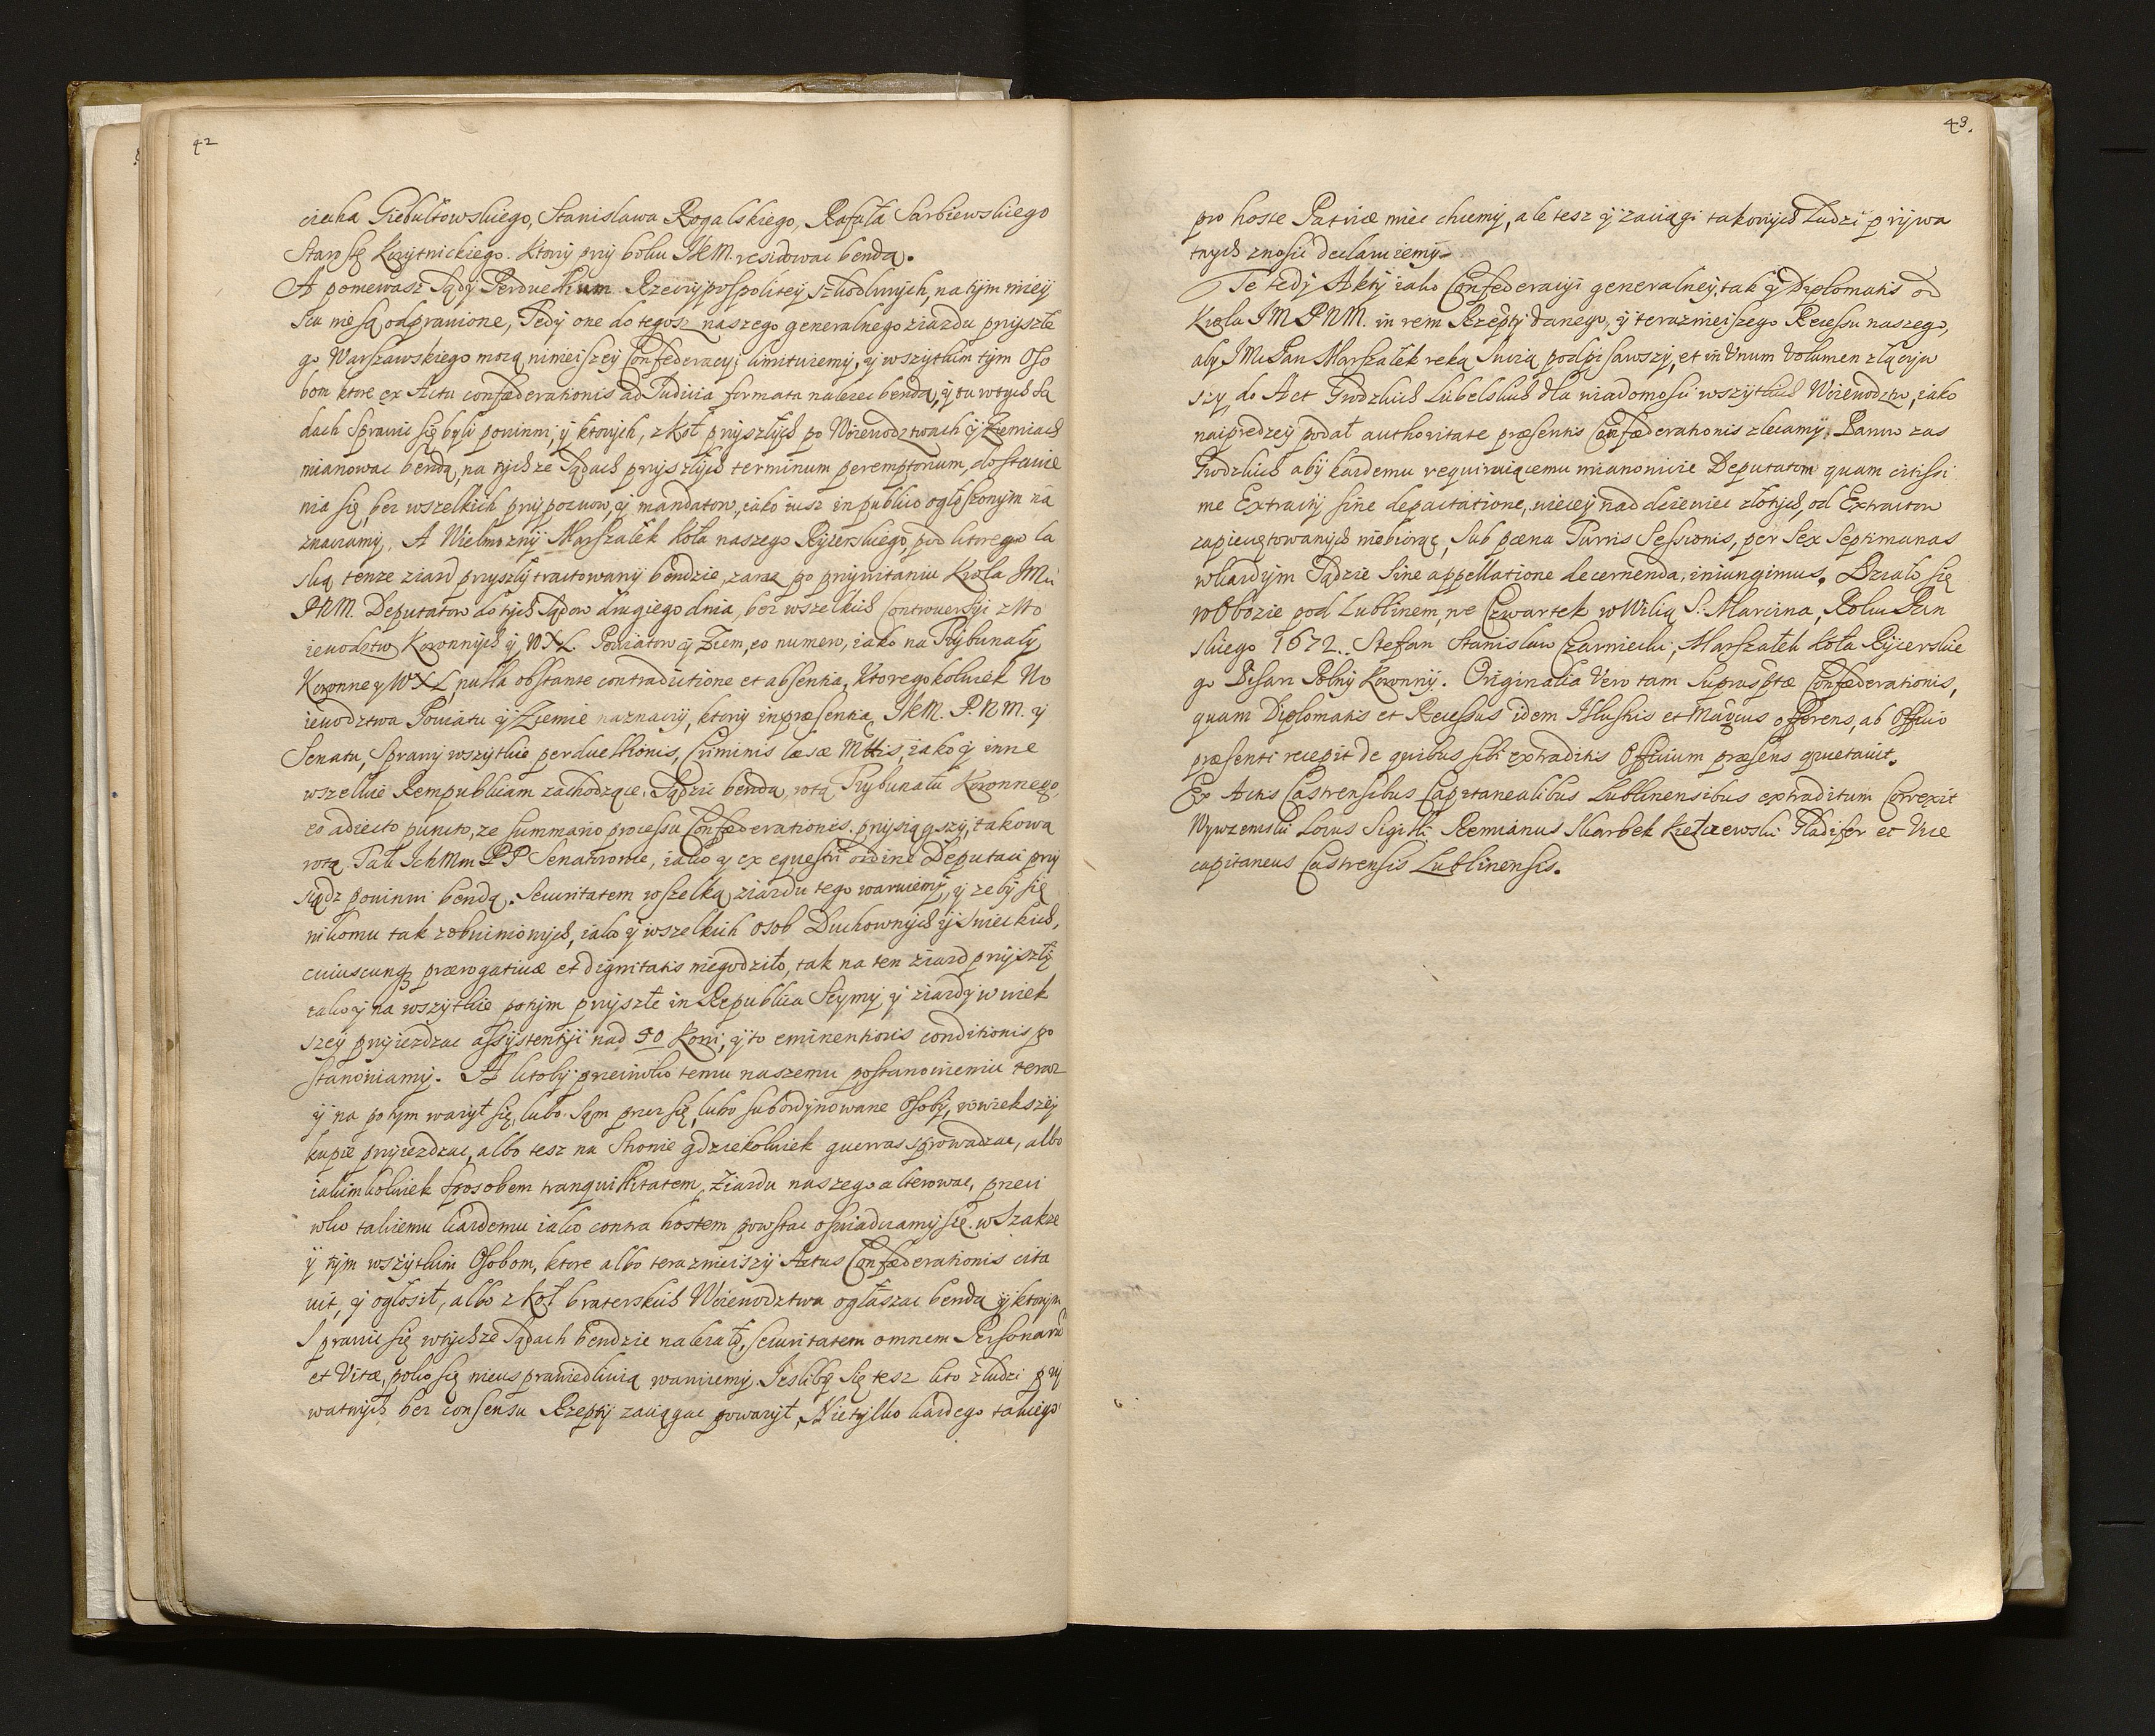 42
ciecha Giebułtowskiego, Stanisława Rogalskiego, Rafała Sarbiewskiego
Starostę Korytnickiego. Ktorzy przy boku JKM. residowac bendą.
A poniewasz Sądy Perduellium Rzeczypospolitey szkodliwych, na tym miey
scu nie są odprawione, Tedy one do tegosz naszego generalnego ziazdu przyszłe
go Warszawskiego mocą ninieiszey Confederacyi limituiemy, y wszytkim tym Oso
bom ktore ex Actu confæderationis ad Judicia formata nalezec bendą, y tu w tych Są
dach Sprawic się byli powinni, y ktorych, z Koł przyszłych po Woiewodztwach y Ziemiach
mianowac bendą, na tychze Sądach przyszłych terminum peremptorium, do stawie
nia się, bez wszelkich przypozwow, y mandatow, iako iusz in publico ogłoszonym na
znaczamy. A Wielmozny Marszałek Koła naszego Rycerskiego, pod ktorego la
ską tenze ziazd przyszły tractowany bendzie, zaraz po przywitaniu Krola JMci
P.N.M. Deputatow do tych Sądow drugiego dnia, bez wszelkich Controwersyi z Wo
iewodztw Koronnych y WXL. Powiatow y Ziem, eo numero, iako na Trybunały
Koronne y WXL, nulla obstante contradictione et absentia, Ktoregokolwiek Wo
iewodztwa Powiatu y Ziemie naznaczy, ktorzy in præsentia JKM. P.N.M. y
Senatu, Sprawy wszytkie perduellionis, Criminis læsæ Mttis, iako y inne
wszelkie Rempublicam zachodzące, Sądzic bendą, rotą Trybunału Koronnego,
eo adiecto puncto, ze summario processu Confæderationis. przysiągszy, takową
rotą. Tak IchMm PP Senatorowie, iako y ex equestri ordine Deputaci przy
siądz powinni bendą. Securitatem wszelką ziazdu tego waruiemy, y zeby się
nikomu tak z obwinionych, iako y wszelkich osob Duchownych y Swieckich,
cuiuscunq prærogativæ et dignitatis niegodziło, tak na ten ziazd przyszły
iako y na wszytkie potym przyszłe in Republica Seymy y ziazdy w wiek
szey przyiezdzac assystentyi nad 50 Koni, y to eminentioris conditionis po
stanowiamy. A ktoby przeciwko temu naszemu postanowieniu teraz
y na potym wazył się, lubo Sąm przez się, lubo subordynowane Osoby, w wiekszey
kupie przyiezdzac, albo tesz na Stronie gdziekolwiek guerras sprowadzac, albo
iakimkolwiek sposobem tranquillitatem, Ziazdu naszego alterowac, przeci
wko takiemu kazdemu iako contra hostem powstac oswiadczamy się. wSzakze
y tym wszytkim Osobom, ktore albo teraznieiszy Actus Confæderationis cita
vit, y ogłosił, albo z Koł braterskich Woiewodztwa ogłaszac bendą y ktorym
Sprawic się w tychze Sądach bendzie nalezało, securitatem omnem Personarũ
et Vitæ, poko się nieusprawiedliwią waruiemy. Jesliby się tesz kto z ludzi pry
watnych bez consensu Rzeptey zaciągac powazył, Nietylko kazdego takiego
43.
pro hoste Patriæ miec chcemy, ale tesz y zaciągi takowych Ludzi prywa
tnych znosic declaruiemy.
Te tedy Akty iako Confederacyi generalney, tak y Diplomatis od
Krola JM PNM. in rem Rzeptey danego, y teraznieiszego Recessu naszego,
aby JMc Pan Marszałek reką Swoią podpisawszy, et in Unum Volumen złączyw
szy, do Act Grodzkich Lubelskich dla wiadomosci wszytkich Woiewodztw, iako
naipredzey podał authoritate præsentis Confæderationis zlecamy. Panow zas
Grodzkich aby kazdemu requiruiącemu mianowicie Deputatom quam citissi
me Extracty sine depactatione, wiecey nad dziewiec złotych, od Extractow
zapieczętowanych niebiorąc, Sub pœna Turris Sessionis, per Sex Septimanas
w kazdym Sądzie Sine appellatione decernenda, iniungimus. Działo się
w Obozie pod Lublinem, we Czwartek w Wilią S. Marcina, Roku Pan
skiego 1672. Stefan Stanisław Czarniecki, Marszałek Koła Rycerskie
go Pisarz Polny Koronny. Originalia Vero tam Suprascptæ Confæderationis,
quam Diplomatis et Recessus idem Illustris et Magcus offerens, ab Officio
præsenti recepit de quibus sibi extraditis Officium præsens quietavit.
Ex Actis Castrensibus Capitanealibus Lublinensibus extraditum Correxit
Wywzemski Locus Sigilli Remianus Skarbek Kiełczewski Gladifer et Vice
capitaneus Castrensis Lublinensis.